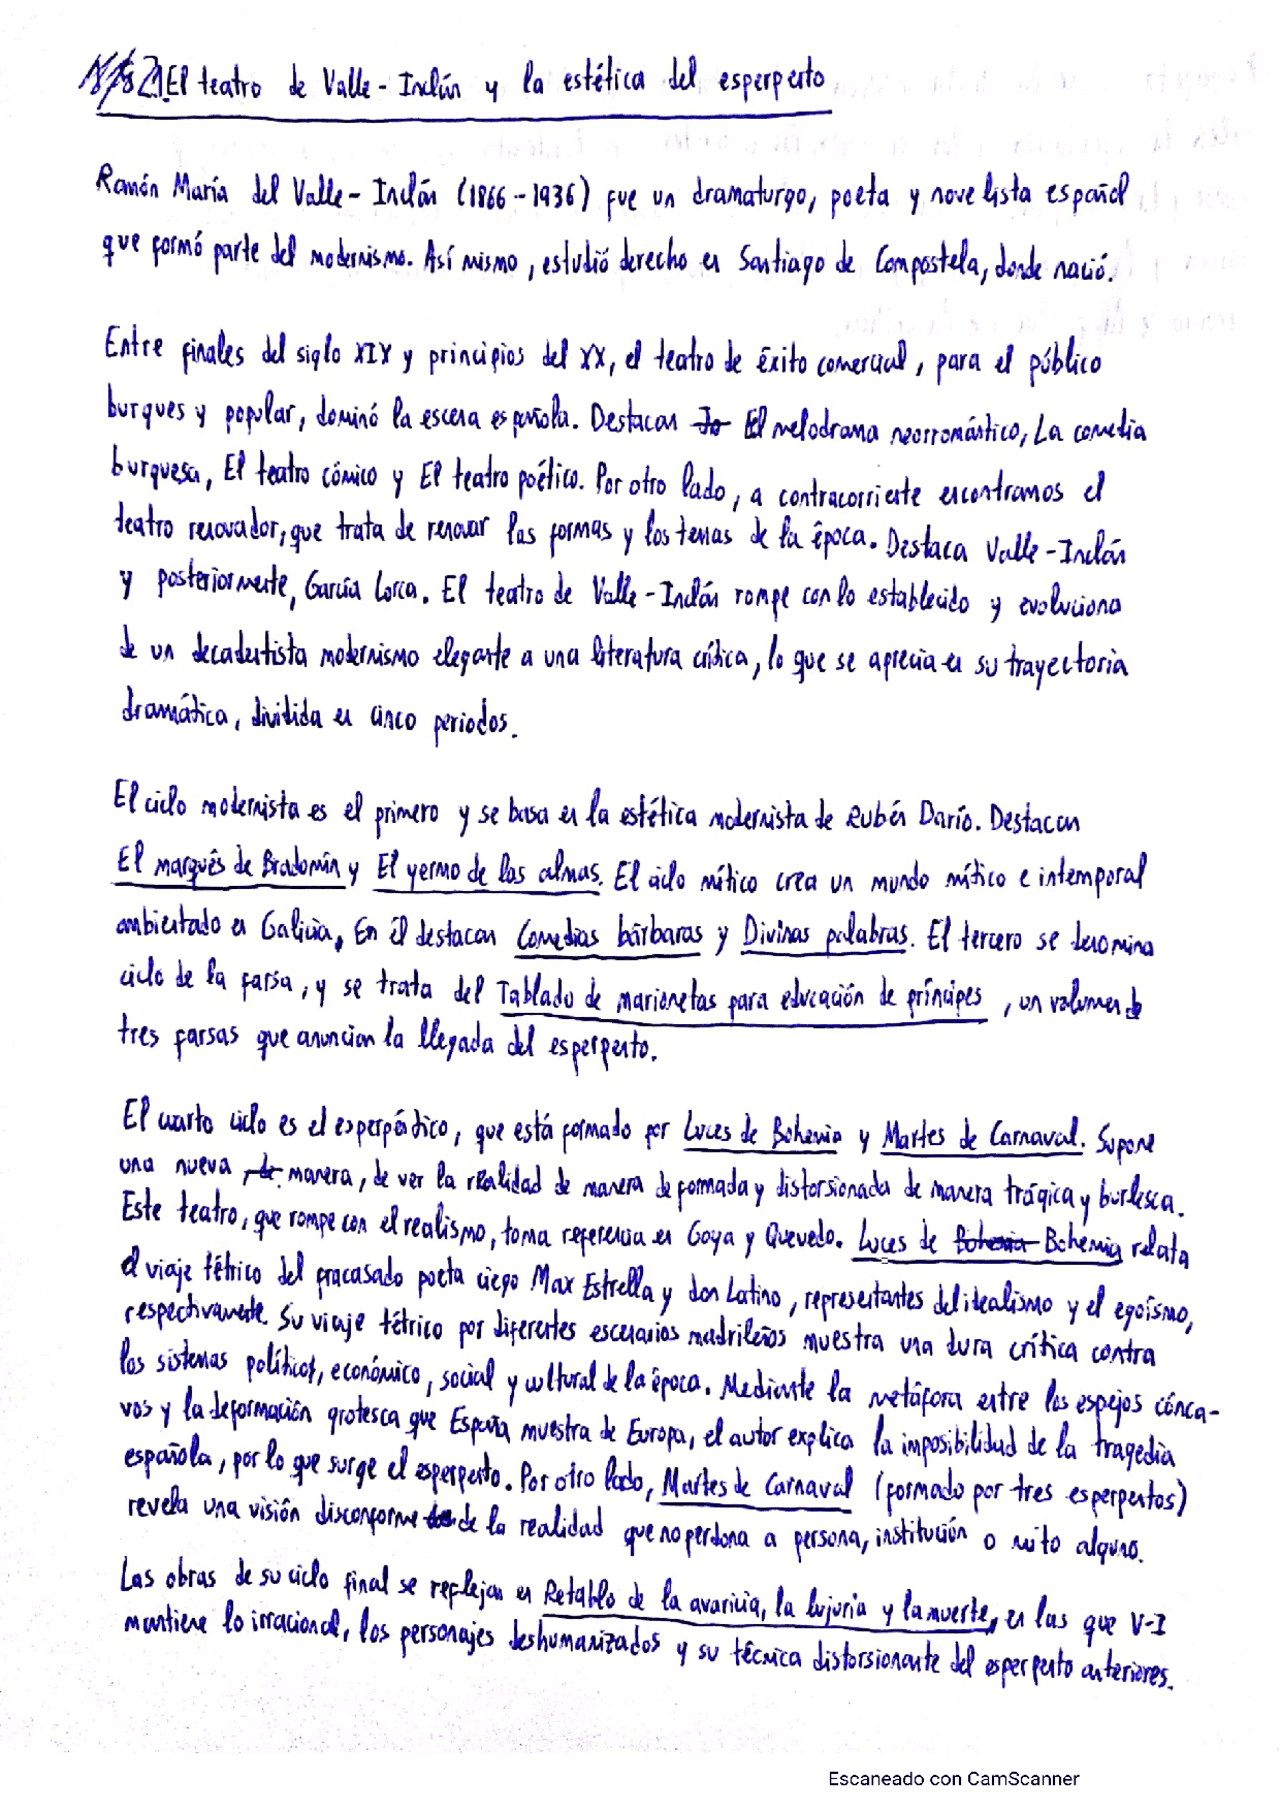 2. El teatro de Valle-Inclán y la estética del esperpento
Ramón María del Valle-Inclán (1866-1936) fue un dramaturgo, poeta y novelista español
que formó parte del modernismo. Así mismo, estudió derecho en Santiago de Compostela, donde nació.
Entre finales del siglo XIX y principios del XX, el teatro de éxito comercial, para el público
burgues y popular, dominó la escena española. Destacan El melodrama neorromántico, La comedia
burguesa, El teatro cómico y El teatro poético. Por otro lado, a contracorriente encontramos el
teatro renovador, que trata de renovar las formas y los temas de la época. Destaca Valle-Inclán
y posteriormente, García Lorca. El teatro de Valle-Inclán rompe con lo establecido y evoluciona
de un decadentista modernismo elegante a una literatura crítica, lo que se aprecia en su trayectoria
dramática, dividida en cinco periodos.
El ciclo modernista es el primero y se basa en la estética modernista de Rubén Darío. Destacan
El marqués de Bradomín y El yermo de las almas. El ciclo mítico crea un mundo mítico e intemporal
ambientado en Galicia, En él destacan Comedias bárbaras y Divinas palabras. El tercero se denomina
ciclo de la farsa, y se trata del Tablado de marionetas para educación de príncipes, un volumen de
tres farsas que anuncian la llegada del esperpento.
El cuarto ciclo es el esperpéntico, que está formado por Luces de Bohemia y Martes de Carnaval. Supone
una nueva manera, de ver la realidad de manera deformada y distorsionada de manera trágica y burlesca.
Este teatro, que rompe con el realismo, toma referencia en Goya y Quevedo. Luces de Bohemia relata
el viaje tétrico del fracasado poeta ciego Max Estrella y don Latino, representantes del idealismo y el egoísmo,
respectivamente. Su viaje tétrico por diferentes escenarios madrileños muestra una dura crítica contra
los sistemas políticos, económico, social y cultural de la época. Mediante la metáfora entre los espejos cónca-
vos y la deformación grotesca que España muestra de Europa, el autor explica la imposibilidad de la tragedia
española, por lo que surge el esperpento. Por otro lado, Martes de Carnaval (formado por tres esperpentos)
revela una visión disconforme de la realidad que no perdona a persona, institución o mito alguno.
Las obras de su ciclo final se reflejan en Retablo de la avaricia, la lujuria y la muerte, en las que V-I
mantiene lo irracional, los personajes deshumanizados y su técnica distorsionante del esperpento anteriores.
Escaneado con CamScanner